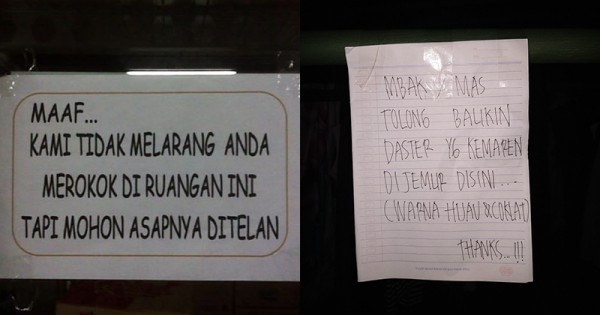 MAAF...
KAMI TIDAK MELARANG ANDA
MEROKOK DI RUANGAN INI
TAPI MOHON ASAPNYA DITELAN
MBAK MAS
TOLONG BALIKIN
DASTER YG KEMAREN
DIJEMUR DISINI...
(WARNA HIJAU & COKLAT)
THANKS...!!!